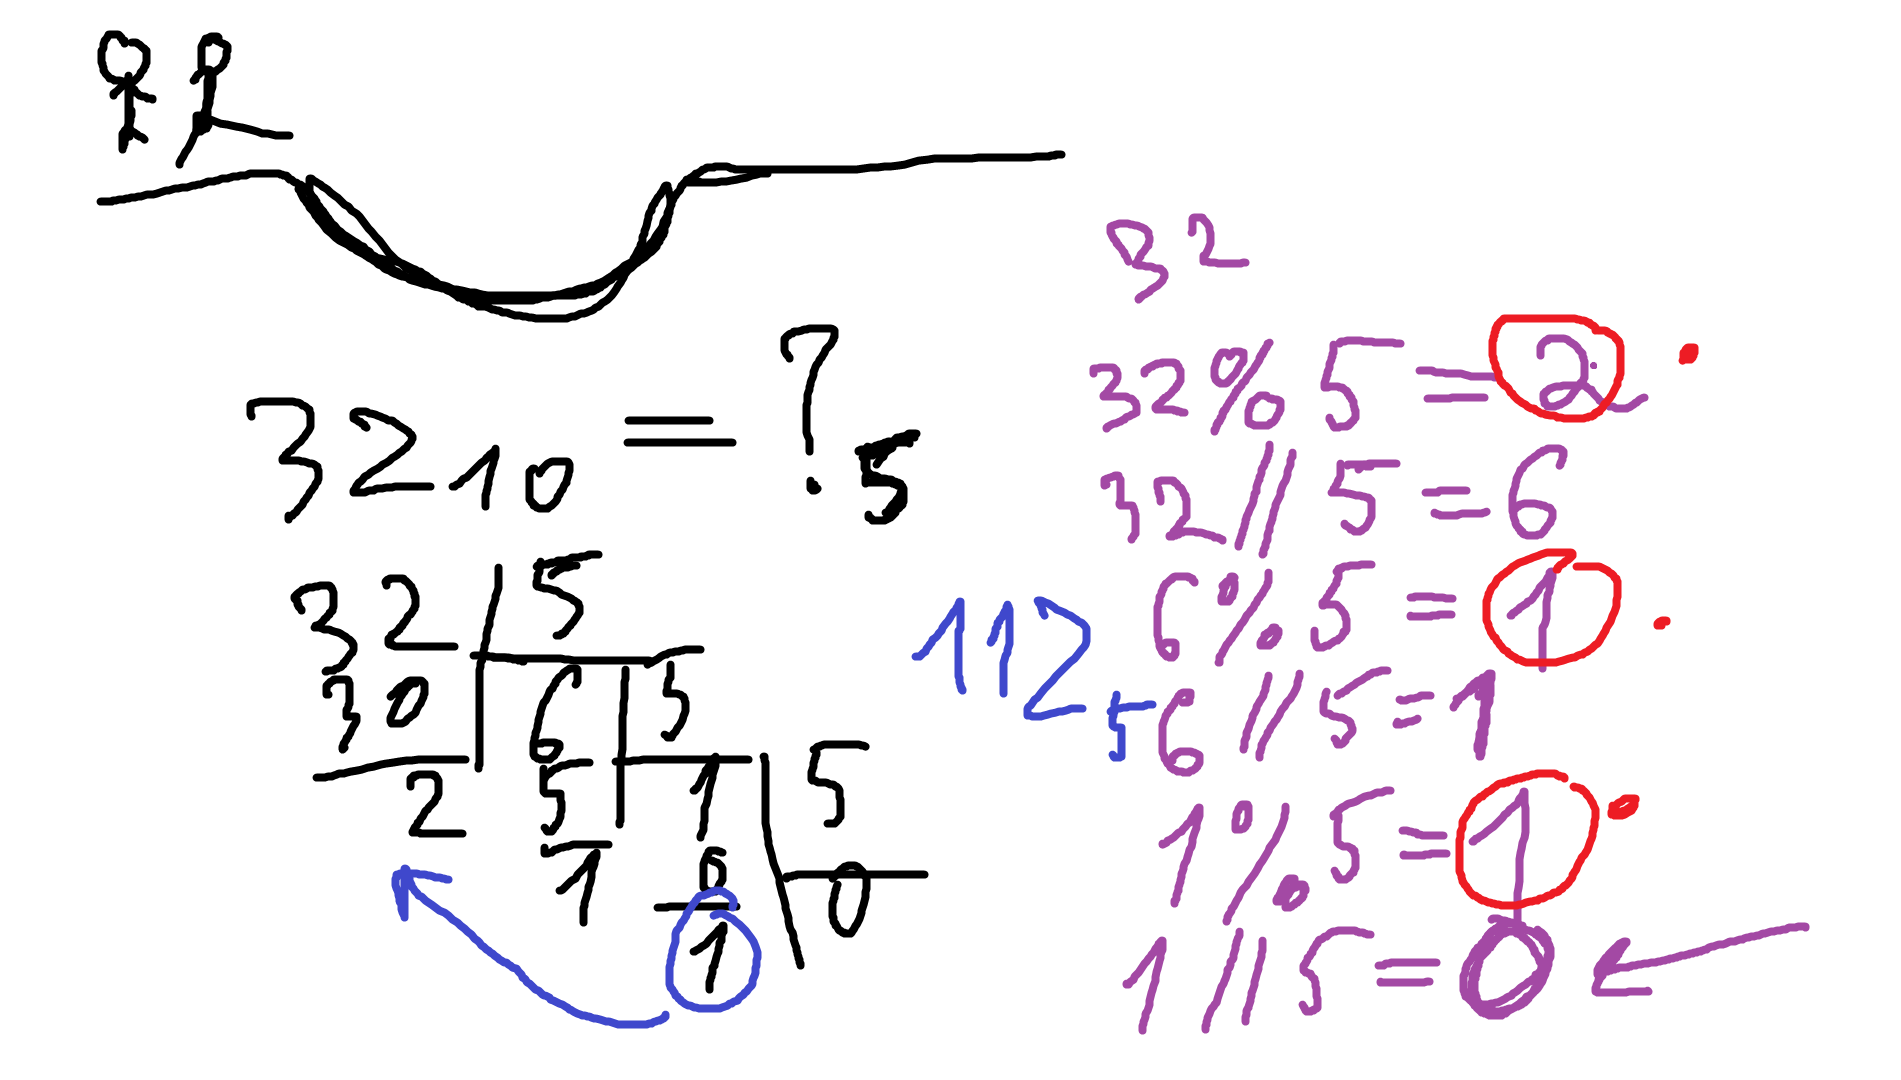 32₁₀ = ?₅
32 5
30 6 5
2 5 1 5
1 0 0
1
112₅
32
32 % 5 = 2
32 // 5 = 6
6 % 5 = 1
6 // 5 = 1
1 % 5 = 1
1 // 5 = 0